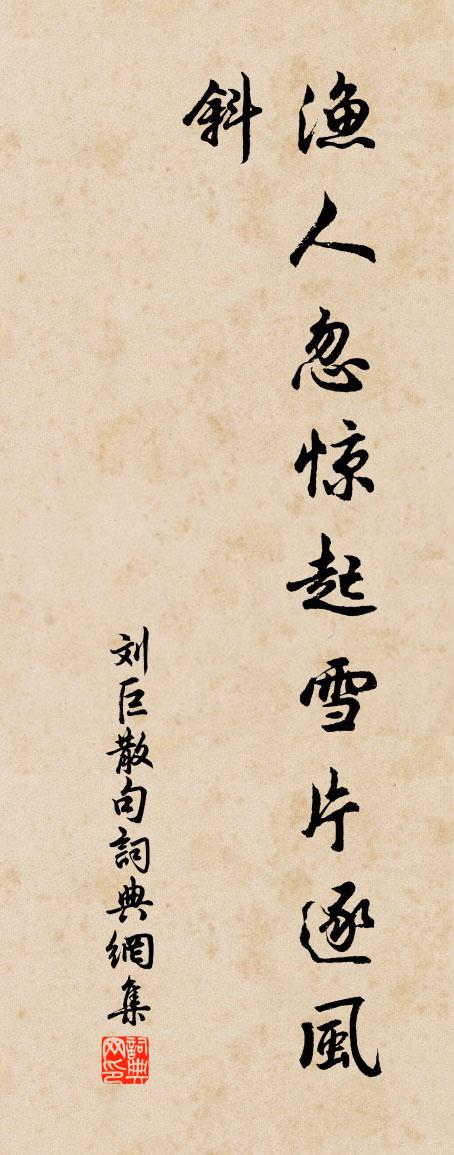 渔人忽惊起雪片逐風
斜
刘巨散句詞典網集
詞典
网印